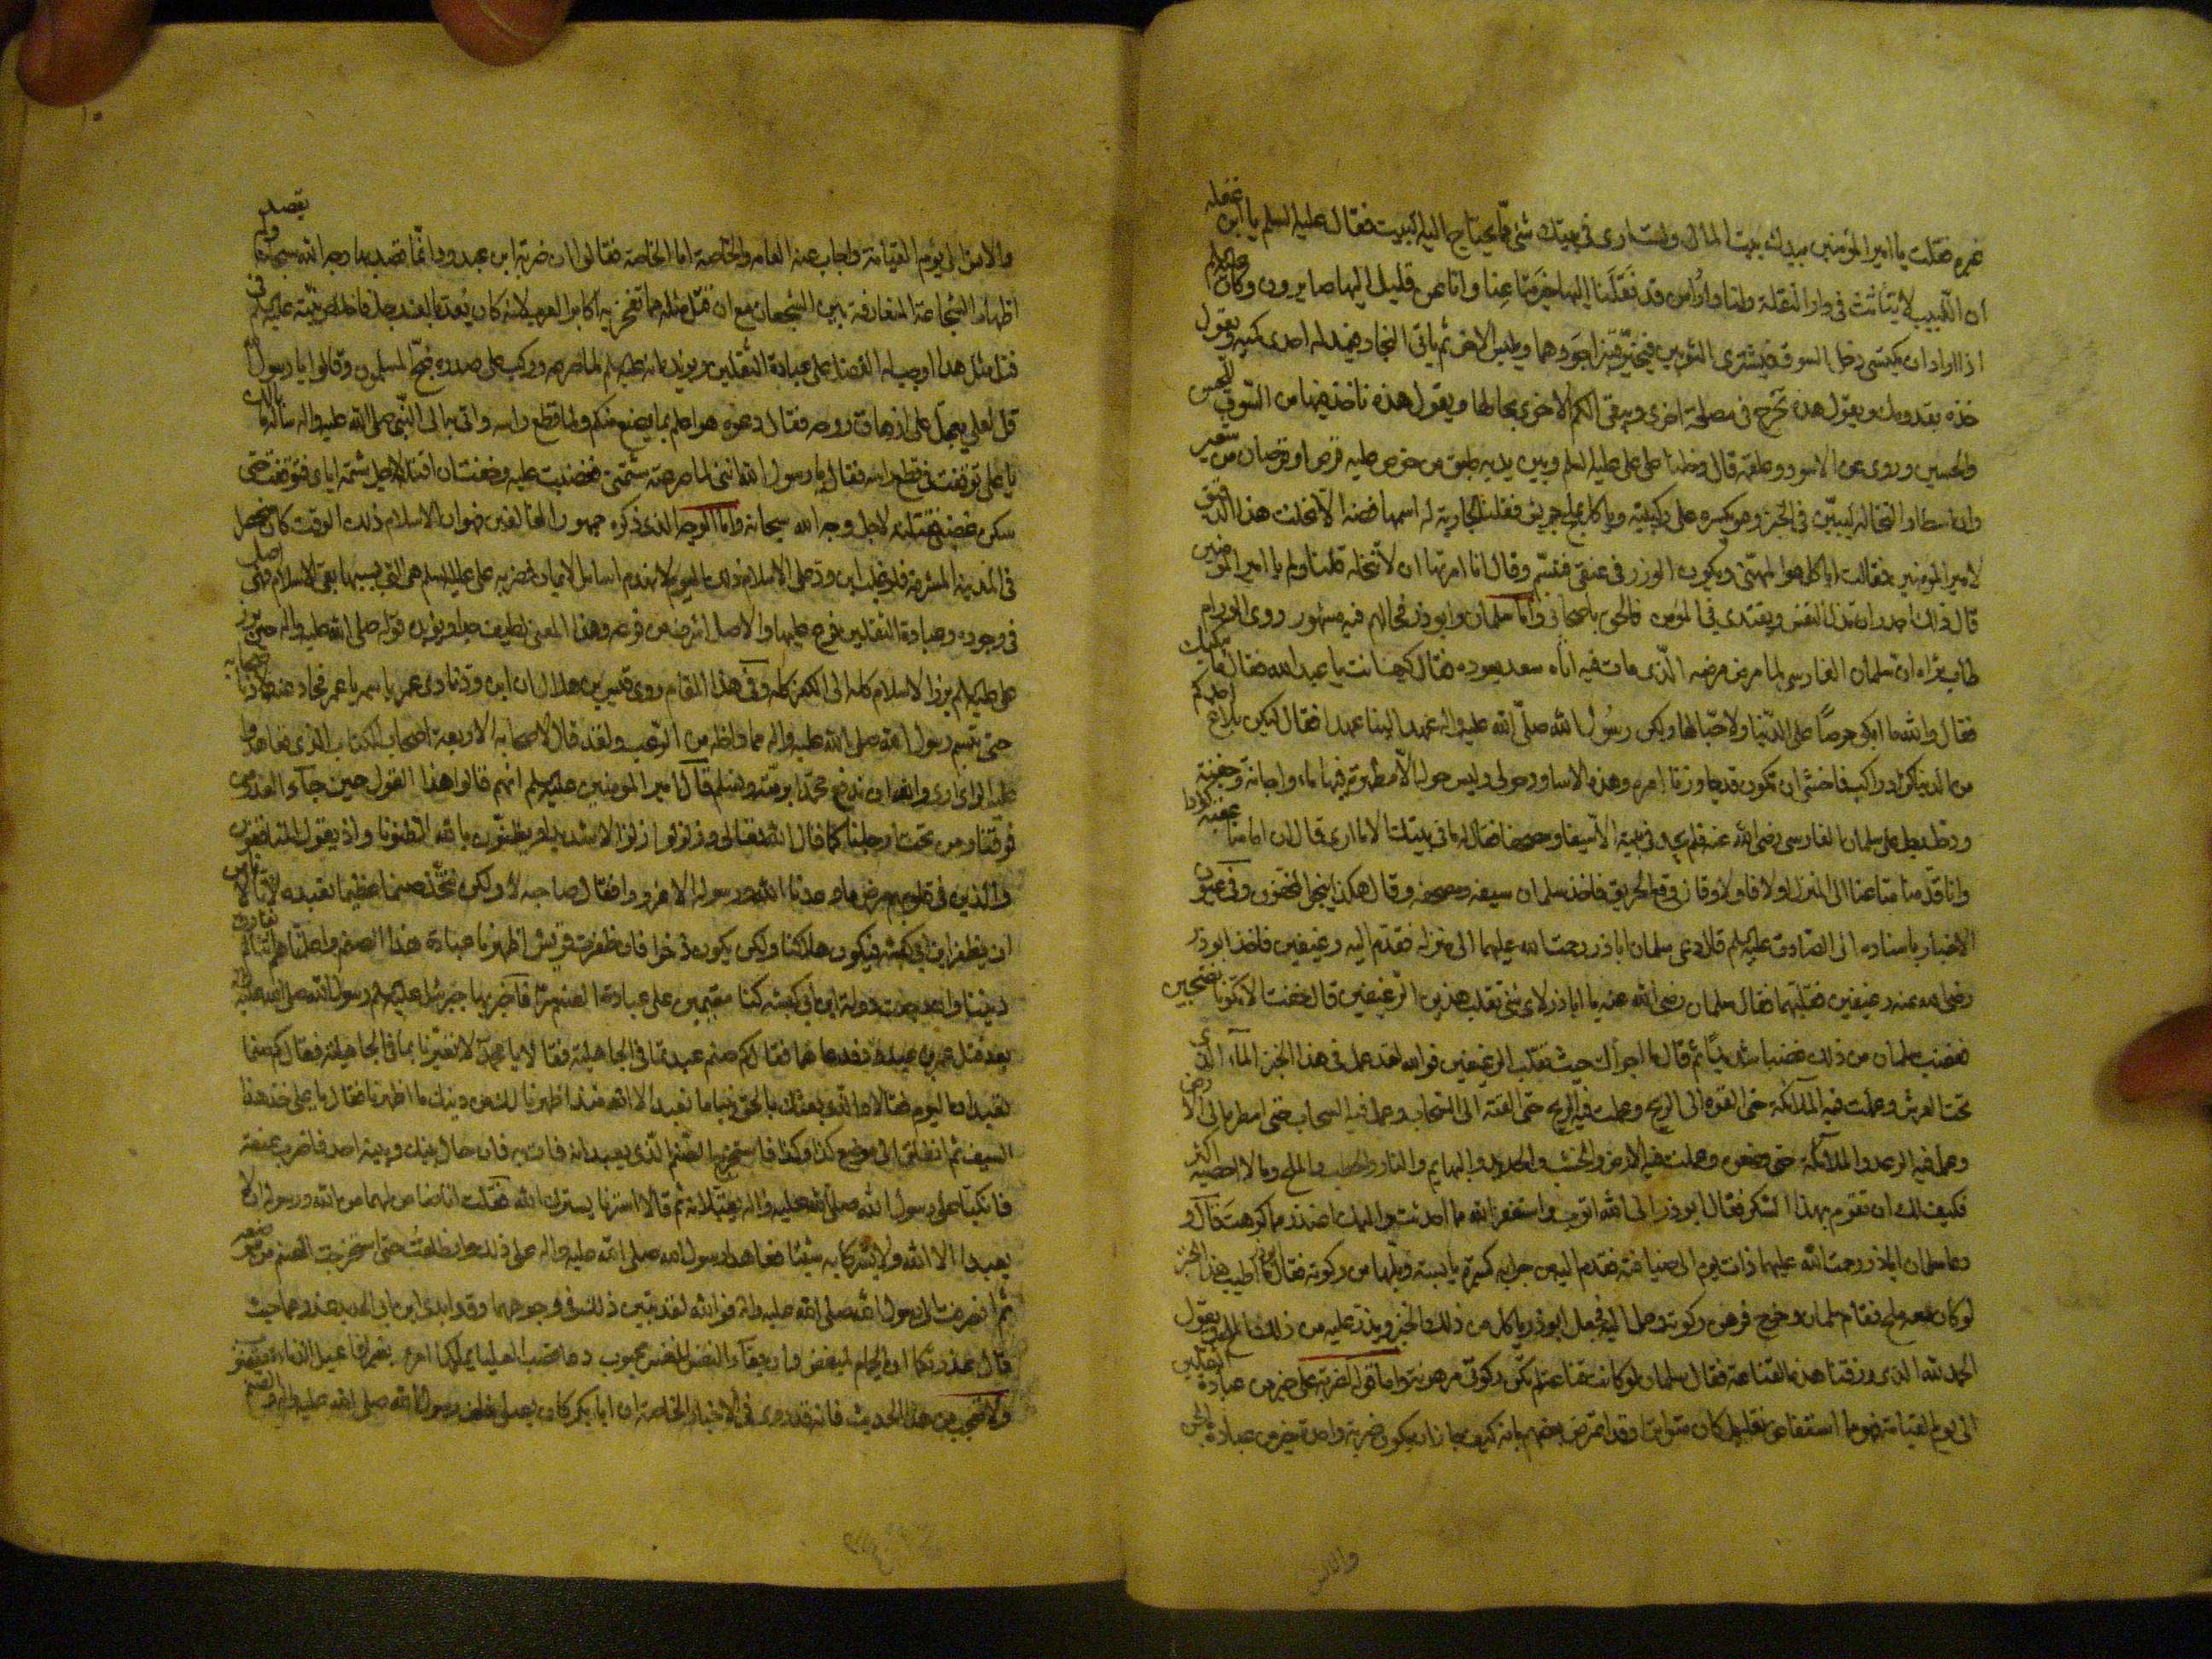 غيره فقلت يا امير المؤمنين بيدك بيت المال ولست ارى في بيتك شيئ مما يحتاج اليه البيت فقال عليه السلم يا ابن غفله
ان اللبيب لا يتأثث في دار النقلة ولنا دار أمن قد نقلنا اليها خير متاعنا وانا عن قليل اليها صايرون وكان عليه السلم
اذا اراد ان يكتسى دخل السوق فيشترى الثوبين فيخير قنبرا اجودهما ويلبس الاخر ثم ياتى النجار فيمد له احدى كميه ويقول
خذه بقدومك ويقول هذه تخرج في مصلحة اخرى ويبقى الكم الاخرى بحالها ويقول هذه ناخذ فيها من السوق للحسن
والحسين وروى عن الاسود وعلقمة قال دخلنا على على عليه السلم وبين يديه طبق من خوص عليه قرص او قرصان من شعير
وان اسطار النخالة لتبين في الخبز وهو يكسره على ركبتيه وياكله بملح جريش فقلنا لجارية له اسمها فضة الا نخلت هذا الدقيق
لامير المؤمنين فقالت اياكل هو المهنى ويكون الوزر في عنقى فتبسم وقال انا امرتها ان لا تنخله قلنا ولم يا امير المؤمنين
قال ذلك اجدر ان تذل النفس ويقتدى بي المؤمن فالحق باصحابي واما سلمان وابوذر فحالهم فيه مشهور روى
طاب ثراه ان سلمان الفارسى لما مرض مرضه الذى مات فيه اتاه سعد يعوده فقال كيف انت يا عبد الله فبكى فقال ما يبكيك
فقال والله ما ابكى حرصا على الدنيا ولا حبا لها ولكن رسول الله صلى الله عليه واله عهد الينا عهدا فقال ليكن بلاغ احدكم
من الدنيا كزاد راكب فاخشى ان نكون قد جاوزنا امره وهذه الاساود حولى وليس حوله الا مطهرة فيها ماء واجانة وجفنة
ودخل رجل على سلمان الفارسى رضى الله عنه فلم يجد في بيته الا سيفا ومصحفا فقال له ما في بيتك الا ما ارى قال ان امامنا عقبة كؤدا
وانا قدمنا متاعنا الى المنزل اولا فاولا وقال وقع الحريق فاخذ سلمان سيفه ومصحفه وقال هكذا ينجو المخفون وفي عيون
الاخبار باسناده الى الصادق عليه السلم قال دعى سلمان اباذر رحمت الله عليهما الى منزله فقدم اليه رغيفين فاخذ ابوذر
رضى الله عنه رغيفين فقلبهما فقال سلمان رضى الله عنه يا اباذر لاى شئ تقلب هذين الرغيفين قال خفت الا يكونا نضيجين
فغضب سلمان من ذلك غضبا شديدا ثم قال ما اجرأك حيث تقلب الرغيفين فوالله لقد عمل في هذا الخبز الماء الذى
تحت العرش وعملت فيه الملائكة حتى القوه الى الريح وعملت فيه الريح حتى القته الى السحاب وعمل فيه السحاب حتى امطره الى الارض
وعمل فيه الرعد والملائكة حتى وضعوه وعملت فيه الارض والخشب والحديد والبهايم والنار والحطب والملح وما لا احصيه اكثر
فكيف لك ان تقوم بهذا الشكر فقال ابوذر الى الله اتوب واستغفر الله مما احدثت واليك اعتذر مما كرهت قال و
دعا سلمان اباذر رحمت الله عليهما ذات يوم الى ضيافة فقدم اليه من جرابه كسرة يابسة وبلها من ركوته فقال ما اطيب هذا الخبز
لو كان معه ملح فقام سلمان وخرج فرهن ركوته وحمل اليه فجعل ابوذر ياكل من ذلك الخبز ويذر عليه من ذلك الملح ويقول
الحمد لله الذى رزقنا هذه القناعة فقال سلمان لو كانت قناعة لم تكن ركوتى مرهونة واما قوله لضربة على خير من عبادة الثقلين
الى يوم القيامة فهو مما استفاض نقله بل كان متواترا وقد اعترض بعضهم بانه كيف جاز ان يكون ضربة واحدة خير من عبادة الجن
والانس
والانس الى يوم القيامة واجاب عنه العامه والخاصة اما الخاصة فقالوا ان ضربة ابن عبدود انما قصد بها وجه الله سبحانه ولم يقصد
اظهار الشجاعة المتعارفة بين الشجعان مع ان قتل مثله مما تفتخر به اكابر العرب لانه كان يعد بالف رجل فاخلاص نيته عليه السلم في
قتل مثل هذا اوجب له الفضل على عبادة الثقلين ويؤيده انه عليه السلم لما صرعه وركب على صدره ضج المسلمون وقالوا يا رسول الله
قل لعلي يعجل على ازهاق روحه فقال دعوه هو اعلم بما يصنع منكم ولما قطع راسه واتى به الى النبى صلى الله عليه واله سأله مالك
يا على توقفت في قطع راسه فقال يا رسول الله انى لما صرعته شتمنى فغضبت عليه وخفت ان اقتله لاجل شتمه اياى فتوقفت حتى
سكن غضبى فقتلته لاجل وجه الله سبحانه واما الوجه الذى ذكره جمهور المخالفين فهو ان الاسلام ذلك الوقت كان منحصر
في المدينة المشرفة فلو غلب ابن ود على الاسلام ذلك اليوم لانهدم اساس الايمان فضربة على عليه السلم هى التى بسببها بقى الاسلام وهى اصل
في وجوده وعبادة الثقلين فرع عليها والاصل اشرف من فرعه وهذا المعنى لطيف جدا ويؤيده قوله صلى الله عليه واله حين برز
على عليه السلم برز الاسلام كله الى الكفر كله وفي هذا المقام روى قيس بن هلال ان ابن ود نادى عمر باسمه يا عمر فحاد عنه ولاذ باصحابه
حتى تبسم رسول الله صلى الله عليه واله مما داخله من الرعب ولقد قال لاصحابه الاربعة اصحاب الكتاب الذى تعاهدوا
عليه الراى والله ان ندفع محمدا برمته ونسلم قال امير المؤمنين عليه السلم انهم قالوا هذا القول حين جاء العدو من
فوقنا ومن تحت ارجلنا كما قال الله تعالى وزلزلوا زلزالا شديدا ويظنون بالله الظنونا واذ يقول المنافقون
والذين في قلوبهم مرض ما وعدنا الله ورسوله الا غرورا فقال صاحبه لا ولكن نتخذ صنما عظيما نعبده لانا لا نأمن
ان يظفر ابن ابى كبشة فيكون هلاكنا ولكن يكون ذخرا فان ظفرت قريش اظهرنا عبادة هذا الصنم واعلمناهم انا لم نفارق
ديننا وان رجعت دولة ابن ابى كبشه كنا مقيمين على عبادة الصنم سرا فاخبر بها جبرئيل عليه السلم رسول الله صلى الله عليه واله
بعد قتل عمرو بن عبدود فدعاهما فقال كم صنم عبدتما في الجاهلية فقالا يا محمد لا تعيرنا بما في الجاهلية فقال كم صنما
تعبدان اليوم فقالا والذى بعثك بالحق نبيا ما نعبد الا الله منذ اظهرنا لك من دينك ما اظهرنا فقال يا على خذ هذا
السيف ثم انطلق الى موضع كذا وكذا فاستخرج الصنم الذى يعبدانه فات به فان حال بينك وبينه احد فاضرب عنقه
فانكبا على رسول الله صلى الله عليه واله يقبلانه ثم قالا استرنا يسترك الله فقلت انا ضامن لهما من الله ورسوله ان لا
يعبدا الا الله ولا يشركا به شيئا فعاهدا رسول الله صلى الله عليه واله على ذلك وانطلقت حتى استخرجت الصنم من موضعه
ثم انصرفت الى رسول الله صلى الله عليه واله فوالله لقد تبين ذلك في وجوههما
ولا تعجب من هذا الحديث فانه قد روى في الاخبار الخاصة ان ابا بكر كان يصلى خلف رسول الله صلى الله عليه واله والصنم